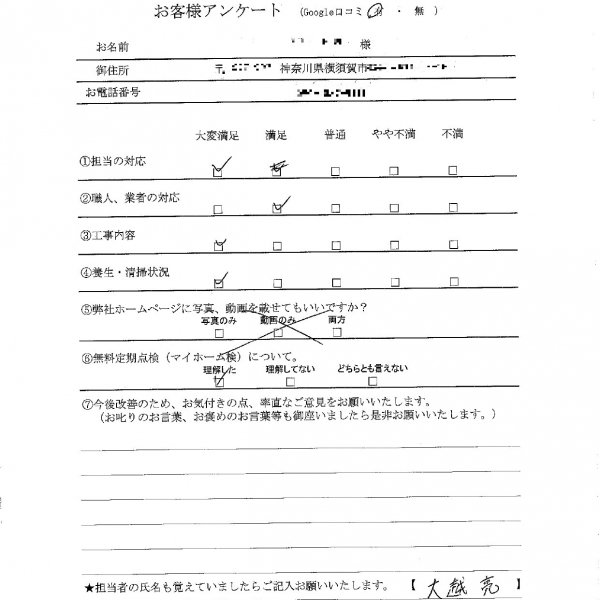 お客様アンケート (Google口コミ 有 ・ 無 )
お名前 様
御住所 〒 神奈川県横須賀市
お電話番号
大変満足 満足 普通 やや不満 不満
①担当の対応
②職人、業者の対応
③工事内容
④養生・清掃状況
⑤弊社ホームページに写真、動画を載せてもいいですか?
写真のみ 動画のみ 両方
⑥無料定期点検(マイホーム検)について。
理解した 理解してない どちらとも言えない
⑦今後改善のため、お気付きの点、率直なご意見をお願いいたします。
(お叱りのお言葉、お褒めのお言葉等も御座いましたら是非お願いいたします。)
★担当者の氏名も覚えていましたらご記入お願いいたします。 【 大越 亮 】